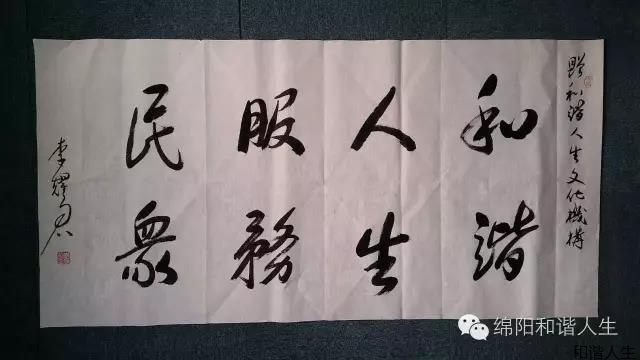 贈和諧人生文化機構
和諧
人生
服務
民衆
李耀
绵阳和谐人生
和谐人生